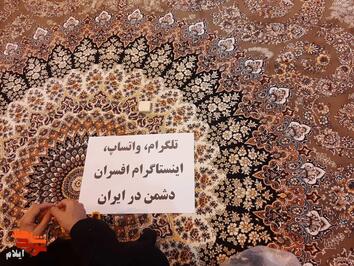 تلگرام، واتساپ،
اینستاگرام افسران
دشمن در ایران
ایلام